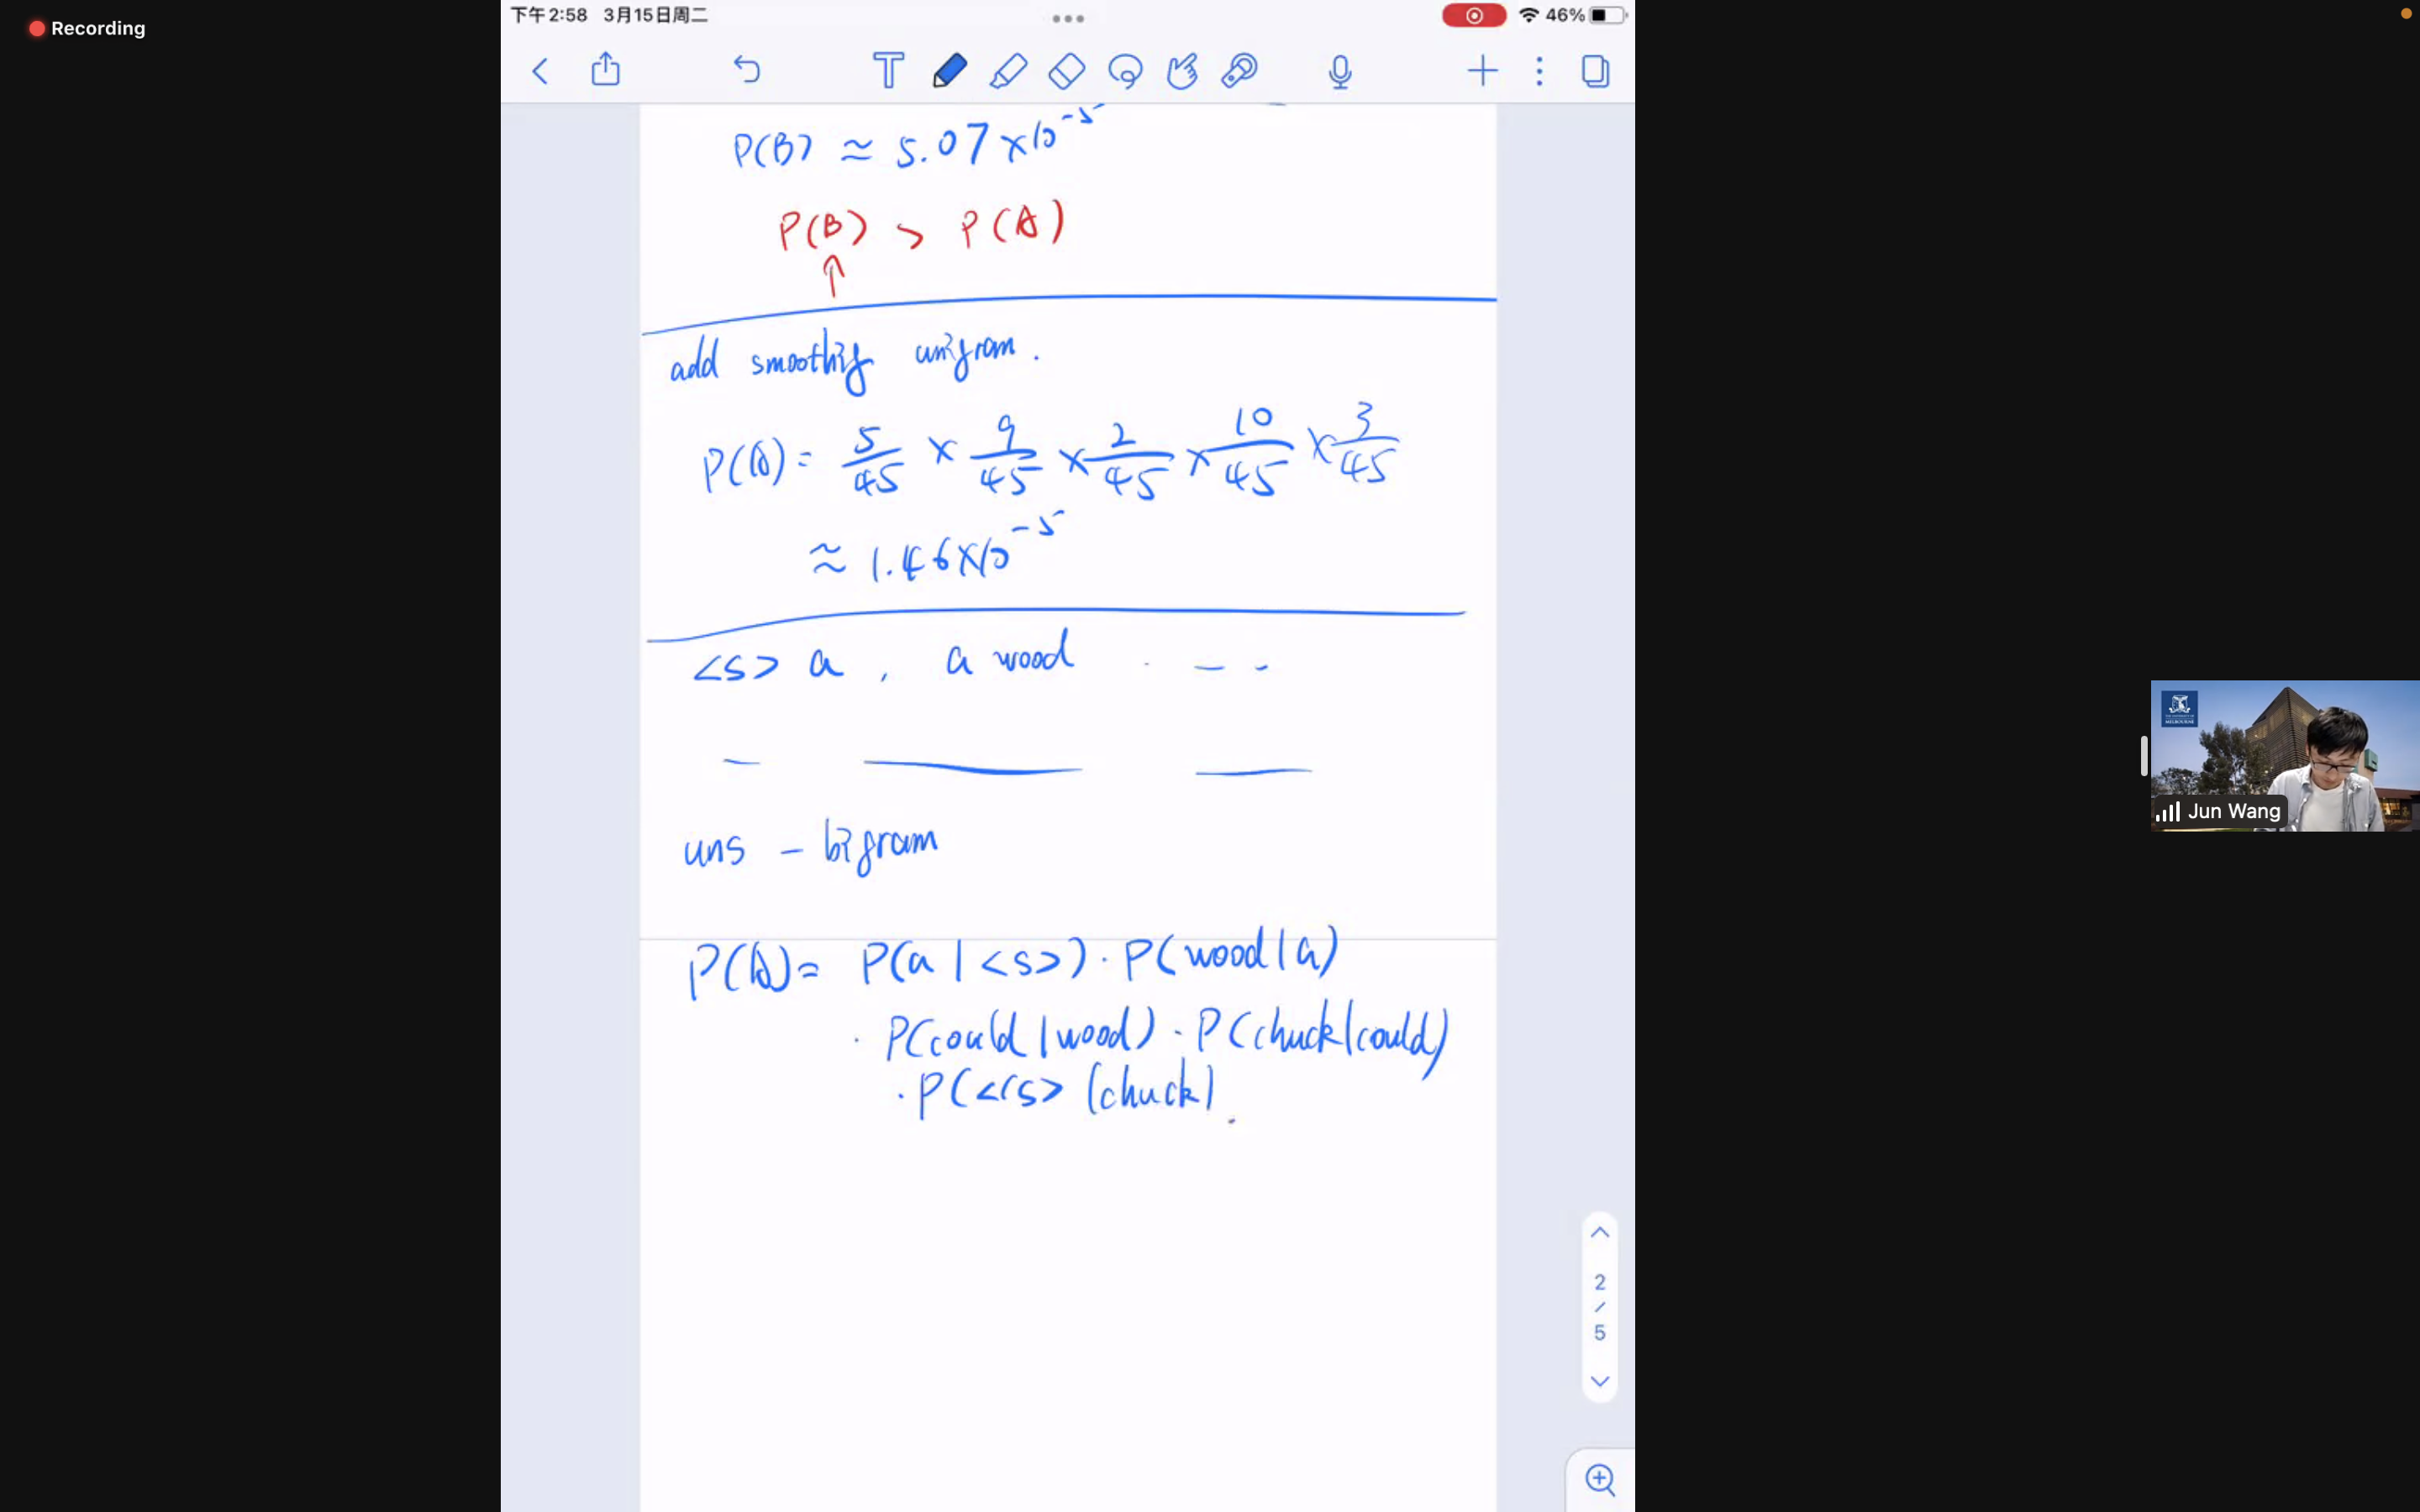 Recording
下午2:58 3月15日周二
46%
P(B) ≈ 5.07 × 10⁻⁵
P(B) > P(A)
↑
add smoothig unigram.
P(A) = 5/45 × 9/45 × 2/45 × 10/45 × 3/45
≈ 1.46×10⁻⁵
<s> a , a wood . — -
uns - bigram
P(A) = P(a | <s>) · P(wood | a)
· P(could | wood) · P(chuck | could)
· P(</s> | chuck) .
2
/
5
Jun Wang